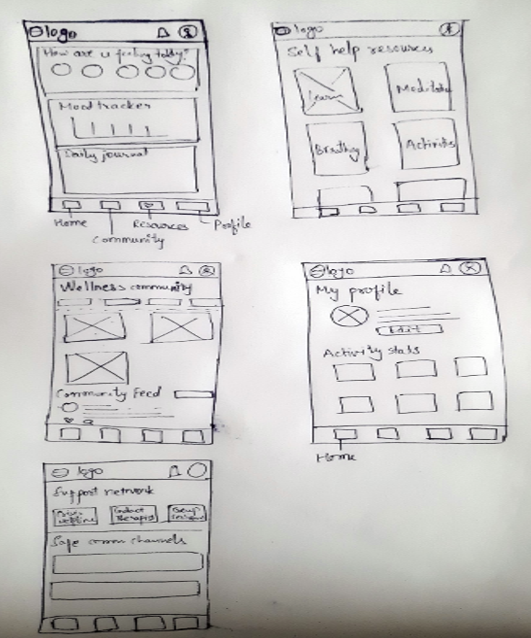 logo
How are u feeling today?
Mood tracker
Daily journal
Home
Community
Resources
Profile
logo
Self help resources
Learn
Meditate
Breathing
Activities
logo
Wellness community
Community Feed
logo
My profile
Edit
Activity stats
Home
logo
Support network
Contact
Therapist
Safe comm channels